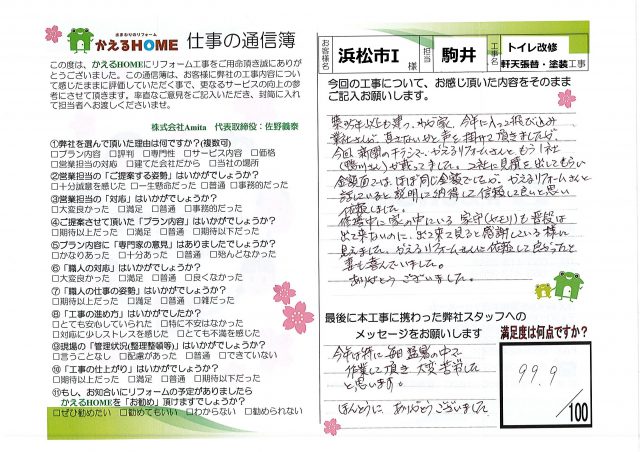 水まわりのリフォーム
かえるHOME 仕事の通信簿
この度は、かえるHOMEにリフォーム工事をご用命頂き誠にありが
とうございました。この通信簿は、お客様に弊社の工事内容について
感じたままに評価していただく事で、更なるサービスの向上の参
考にさせて頂きます。率直なご意見をご記入いただき、封筒に入れ
て担当者へお渡しくださいませ。
株式会社Amita 代表取締役:佐野義泰
①弊社を選んで頂いた理由は何ですか?(複数可)
□プラン内容 □評判 □専門性 □サービス内容 □価格
□営業担当の対応 □建てた会社だから □当社の場所
②営業担当の「ご提案する姿勢」はいかがでしょうか?
□十分誠意を感じた □一生懸命だった □普通 □事務的だった
③営業担当の「対応」はいかがでしょうか?
□大変良かった □満足 □普通 □事務的だった
④ご提案させて頂いた「プラン内容」はいかがでしょうか?
□期待以上だった □満足 □普通 □期待以下だった
⑤プラン内容に「専門家の意見」はありましたでしょうか?
□かなりあった □十分あった □普通 □殆んどなかった
⑥「職人の対応」はいかがでしょうか?
□大変良かった □満足 □普通 □良くなかった
⑦「職人の仕事の姿勢」はいかがでしょうか?
□期待以上だった □満足 □普通 □雑だった
⑧「工事の進め方」はいかがでしたか?
□とても安心していられた □特に不安はなかった
□対応に少しストレスを感じた □とても不満を感じた
⑨現場の「管理状況(整理整頓等)」はいかがでしょうか?
□言うことなし □配慮があった □普通 □できていない
⑩「工事の仕上がり」はいかがでしょうか?
□期待以上だった □満足 □普通 □期待以下だった
⑪もし、お知合いにリフォームの予定がありましたら
かえるHOMEを「お勧め」頂けますでしょうか?
□ぜひ勧めたい □勧めてもいい □わからない □勧められない
お客様名 浜松市I 様 担当 駒井 工事名 トイレ改修
軒天張替・塗装 工事
今回の工事について、お感じ頂いた内容をそのまま
ご記入お願いします。
今回 新聞のチラシで、かえるリフォームさんともう1社
さんが載ってました。2社に見積を出してもらい
金額面では、ほぼ同じ金額でしたが、かえるリフォームさんと
話していると説明に納得して信頼して良いと思い
依頼しました。
修復中に家の中にいる家守(ヤモリ)も普段は
出て来ないのに、出て来て見ると感謝している様に
見えました。かえるリフォームさんに依頼して良かったと
妻も喜んでいました。
ありがとうございました。
最後に本工事に携わった弊社スタッフへの
メッセージをお願いします
今年は特に毎日猛暑の中で
作業して頂き大変苦労した
と思います。
ほんとうに ありがとうございました
満足度は何点ですか?
99.9
/100